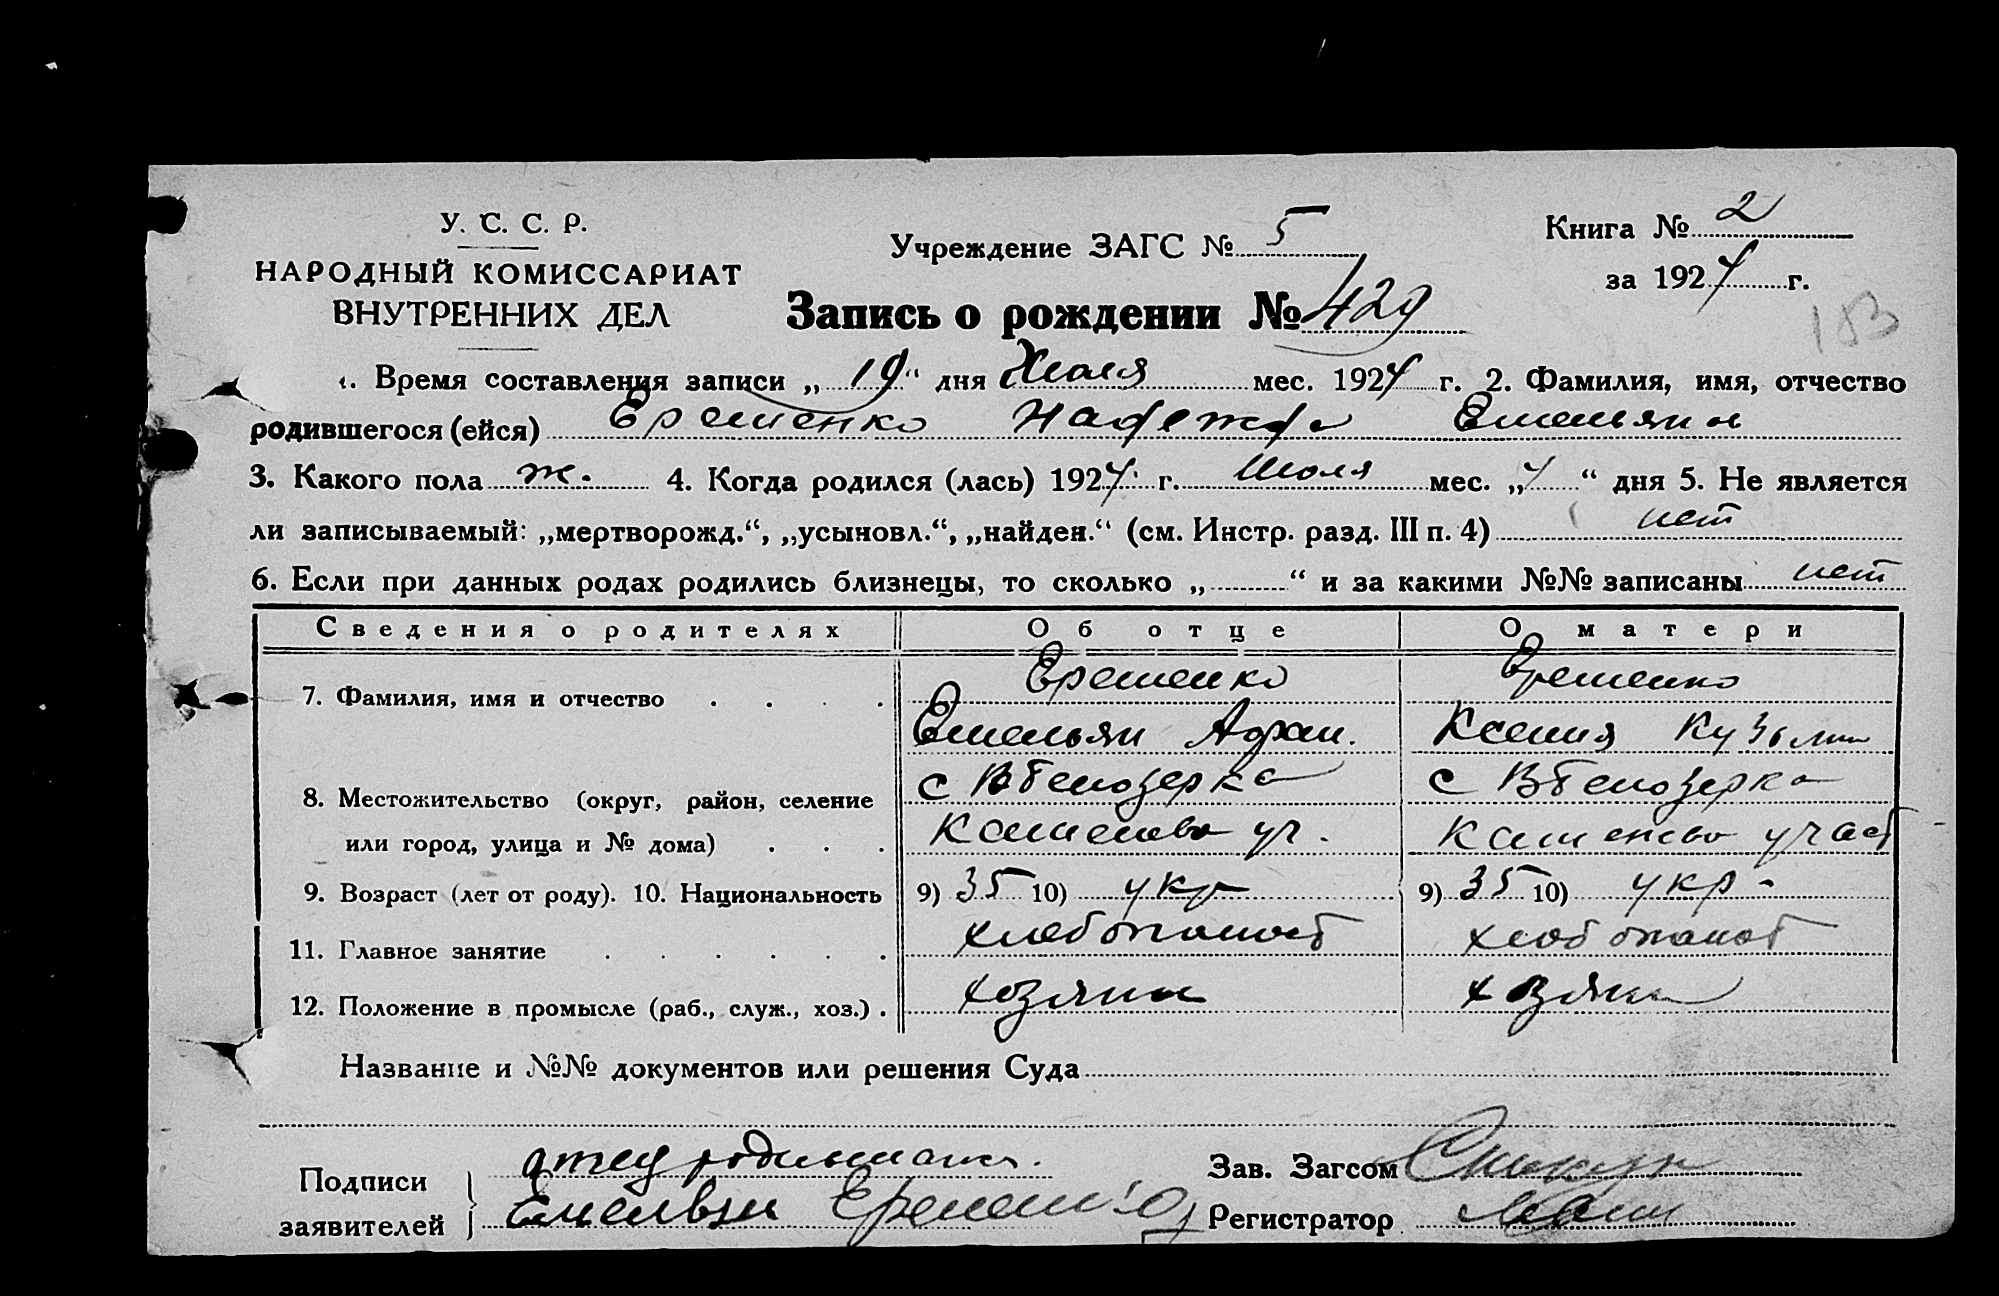 У. С. С. Р.
НАРОДНЫЙ КОМИССАРИАТ
ВНУТРЕННИХ ДЕЛ
Учреждение ЗАГС № 5
Книга № 2
за 1924 г.
Запись о рождении № 429
183
1. Время составления записи „19“ дня Июля мес. 1924 г. 2. Фамилия, имя, отчество
родившегося (ейся) Еременко Надежда Емельян
3. Какого пола ж. 4. Когда родился (лась) 1924 г. Июля мес. „4“ дня 5. Не является
ли записываемый: „мертворожд.“, „усыновл.“, „найден.“ (см. Инстр. разд. III п. 4) нет
6. Если при данных родах родились близнецы, то сколько „ “ и за какими №№ записаны нет
Сведения о родителях Об отце О матери
7. Фамилия, имя и отчество Еременко Еременко
Емельян Афан. Ксения Кузьмин
8. Местожительство (округ, район, селение с ВБелозерка с ВБелозерка
или город, улица и № дома) уч. участ
9. Возраст (лет от роду). 10. Национальность 9) 35 10) укр 9) 35 10) укр.
11. Главное занятие хлебопашест хлебопашест
12. Положение в промысле (раб., служ., хоз.) хозяин хозяин
Название и №№ документов или решения Суда
Подписи заявителей отец
Емельян Еременко
Зав. Загсом
Регистратор